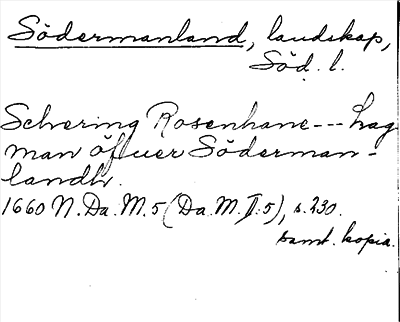 Södermanland, landskap,
Söd. l.
Schering Rosenhane --- Lag
man öfuer Söderman-
landh.
1660 N. Da. M. 5 (Da. M. II:5), s. 230.
samt. kopia.